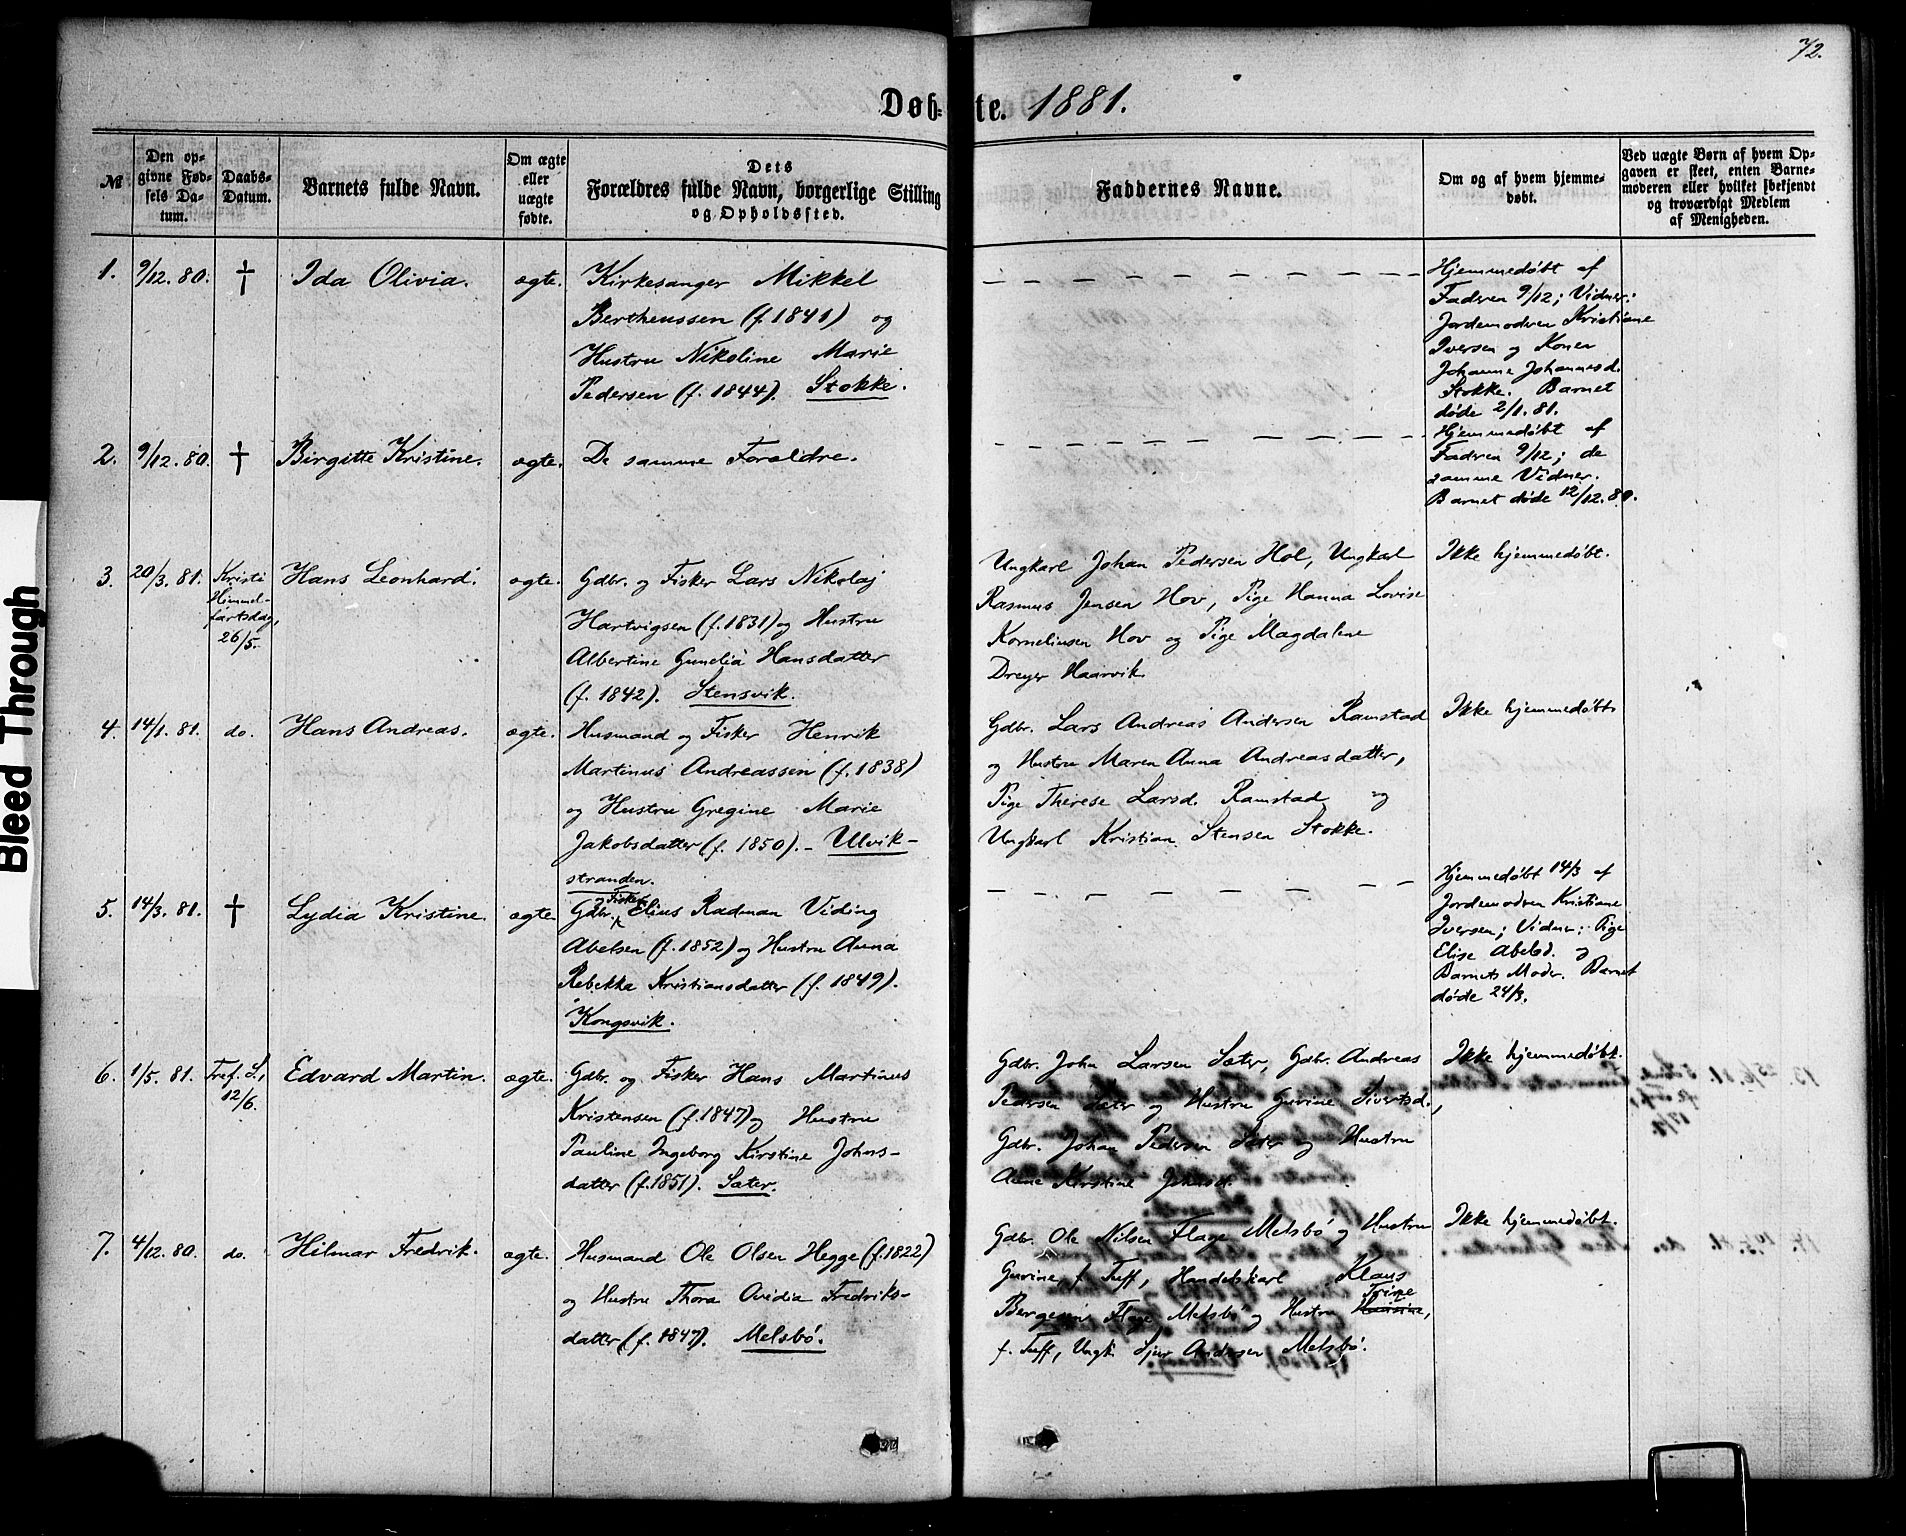 72.
Døb- te. 1881.
№
Den op-
givne Fød-
sels Da-
tum.
Daabs-
Datum.
Barnets fulde Navn.
Om ægte
eller
uægte
fødte.
Dets
Forældres fulde Navn, borgerlige Stilling
og Opholdssted.
Faddernes Navne.
Om og af hvem hjemme-
døbt.
Ved uægte Børn af hvem Op-
gaven er skeet, enten Barne-
moderen eller hvilket bekjendt
og troværdigt Medlem
af Menigheden.
1. 9/12. 80. † Ida Olivia. ægte.
Kirkesanger Mikkel
Bertheussen (f. 1841) og
Hustru Nikoline Marie
Pedersen (f. 1844). Stokke.
Hjemmedøbt af
Faderen 9/12; Vidner:
Jordemodren Kristiane
Iversen og Konen
Johanne Johannesd.
Stokke. Barnet
døde 2/1. 81.
2. 9/12. 80. † Birgitte Kristine. ægte. De samme Forældre.
Hjemmedøbt af
Faderen 9/12; de
samme Vidner.
Barnet døde 12/12. 80.
3. 20/3. 81. Kristi
Himmel-
fartsdag,
26/5.
Hans Leonhard. ægte.
Gdbr. og Fisker Lars Nikolaj
Hartvigsen (f. 1831) og Hustru
Albertine Gunelia Hansdatter
(f. 1842). Stensvik.
Ungkarl Johan Pedersen Hol, Ungkarl
Rasmus Jensen Hov, Pige Hanna Lovise
Korneliusen Hov og Pige Magdalene
Dreyer Haarvik.
Ikke hjemmedøbt.
4. 14/1. 81. do. Hans Andreas. ægte.
Husmand og Fisker Henrik
Martinus Andreassen (f. 1838)
og Hustru Gregine Marie
Jakobsdatter (f. 1850). - Ulvik-
stranden.
Gdbr. Lars Andreas Andersen Ramstad
og Hustru Maren Anna Andreasdatter,
Pige Therese Larsd. Ramstad og
Ungkarl Kristian Stensen Stokke.
Ikke hjemmedøbt
5. 14/3. 81. † Lydia Kristine. ægte.
og Fisker
Gdbr. Elius Radman Viding
Abelsen (f. 1852) og Hustru Anna
Rebekka Kristiansdatter (f. 1849).
Kongsvik.
Hjemmedøbt 14/3 af
Jordemodren Kristiane
Iversen; Vidner: Pige
Elise Abelsd. og
Barnets Moder. Barnet
døde 24/3.
6. 1/5. 81. Tref. S.,
12/6.
Edvard Martin. ægte.
Gdbr. og Fisker Hans Martinus
Kristensen (f. 1847) og Hustru
Pauline Ingeborg Kirstine Johns-
datter (f. 1851). Sæter.
Gdbr. John Larsen Sæter, Gdbr. Andreas
Pedersen Sæter og Hustru Gurine Sivertsd.,
Gdbr. Johan Pedersen Sæter og Hustru
Anne Kirstine Johnsd.
Ikke hjemmedøbt.
7. 4/12. 80. do. Hilmar Fredrik. ægte.
Husmand Ole Olsen Hegge (f. 1822)
og Hustru Thora Ovidia Fredriks-
datter (f. 1847). Melsbø.
Gdbr. Ole Nilsen Flage Melsbø og Hustru
Gurine, f. Tuff, Handelskarl Klaus
Trine
Bergesen Flage Melsbø og Hustru
f. Tuff, Ungk. Sjur Andersen Melsbø.
Ikke hjemmedøbt.
Bleed Through